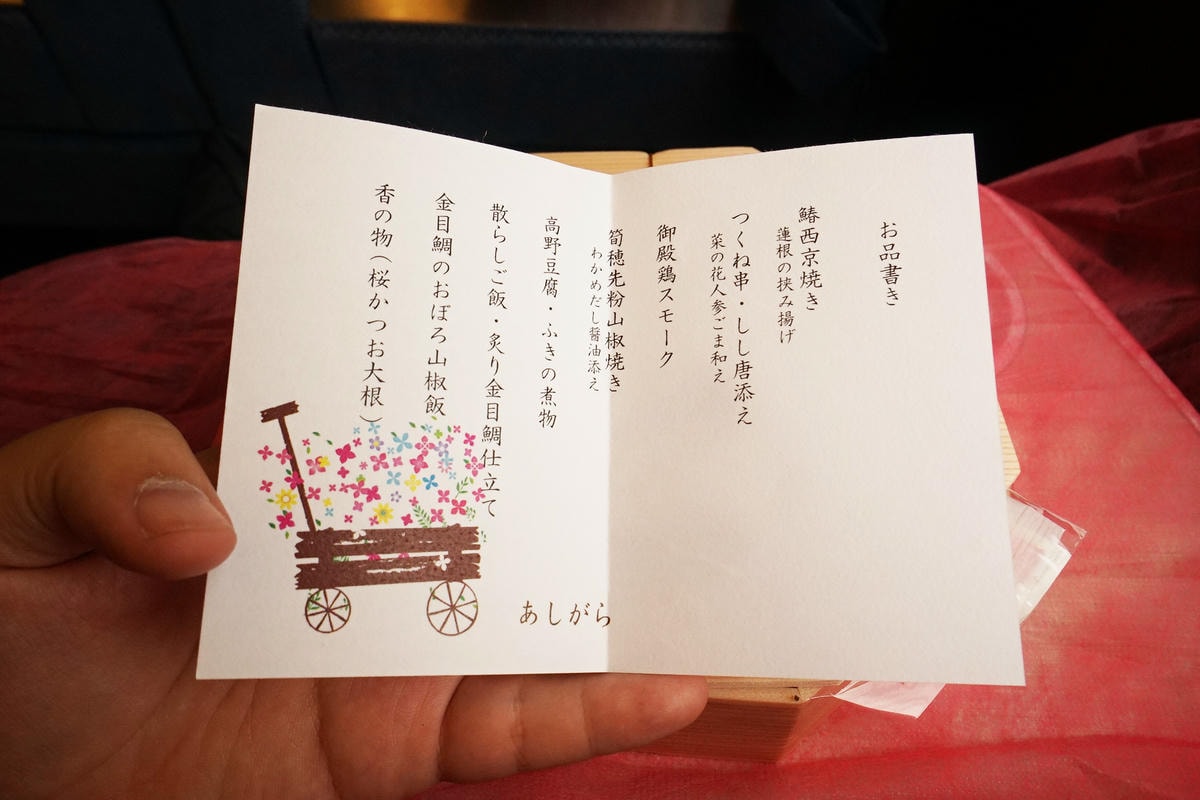 お品書き
鰆西京焼き
蓮根の挟み揚げ
つくね串・しし唐添え
菜の花人参ごま和え
御殿鶏スモーク
筍穂先粉山椒焼き
わかめだし醤油添え
高野豆腐・ふきの煮物
散らしご飯・炙り金目鯛仕立て
金目鯛のおぼろ山椒飯
香の物（桜かつお大根）
あしがら